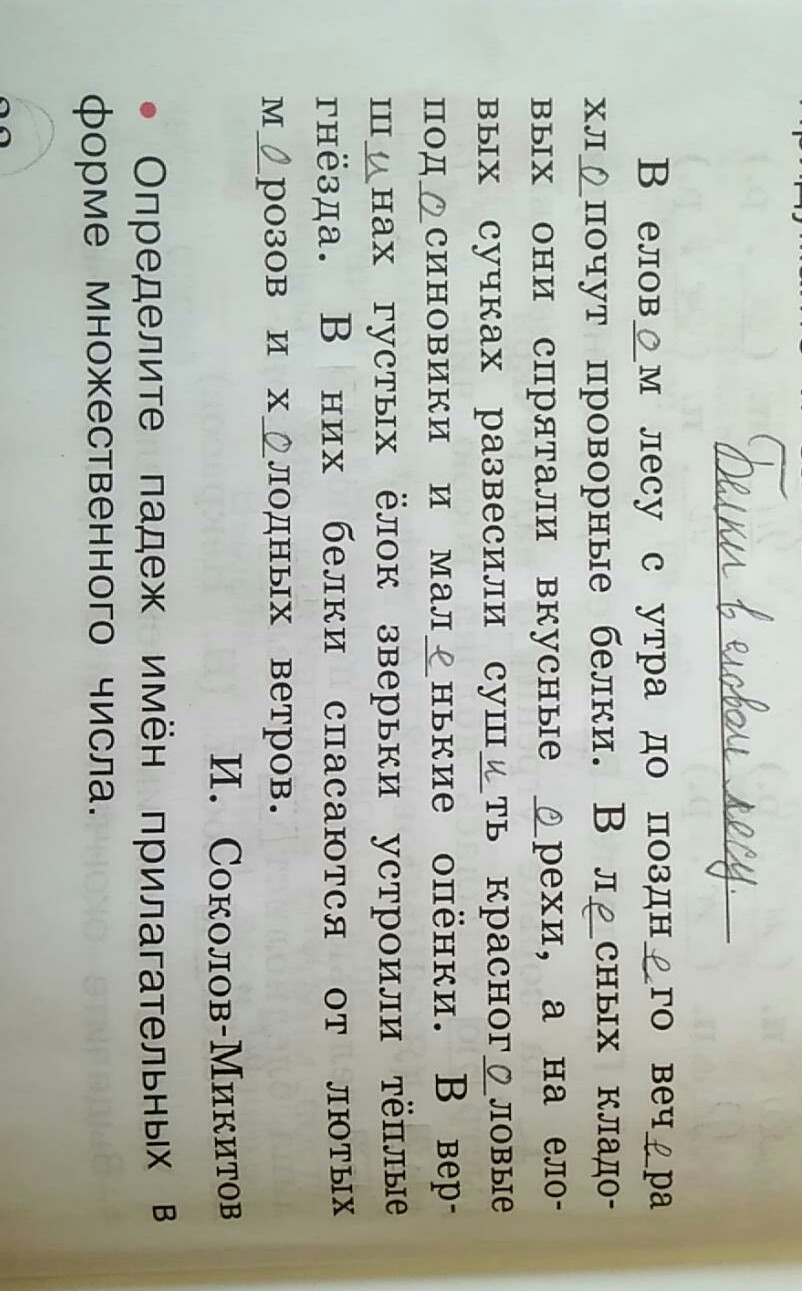 Белки в еловом лесу.
В еловом лесу с утра до позднего вечера
хлопочут проворные белки. В лесных кладо-
вых они спрятали вкусные орехи, а на ело-
вых сучках развесили сушить красноголовые
подосиновики и маленькие опёнки. В вер-
шинах густых ёлок зверьки устроили тёплые
гнёзда. В них белки спасаются от лютых
морозов и холодных ветров.
И. Соколов-Микитов
• Определите падеж имён прилагательных в
форме множественного числа.